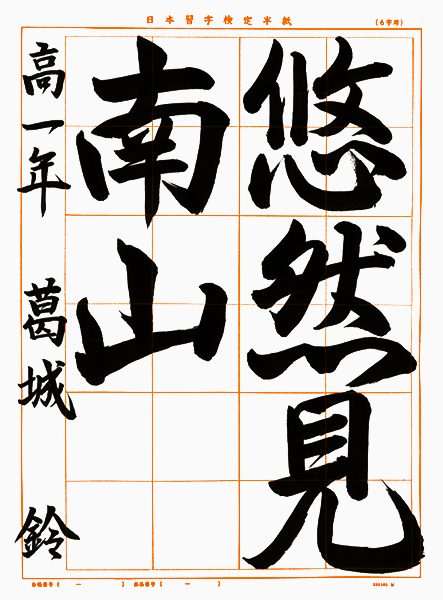 日本習字検定半紙
(6字用)
悠然見
南山
高一年 葛城 鈴